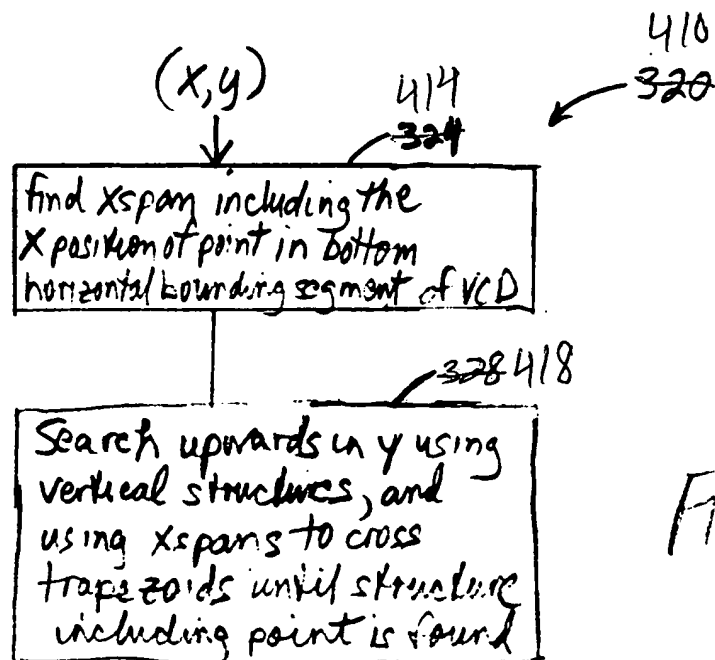 410
320
(x,y)
414
324
find xspan including the
x position of point in bottom
horizontal bounding segment of VCD
328 418
Search upwards in y using
vertical structures, and
using xspans to cross
trapezoids until structure
including point is found